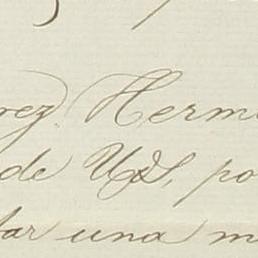 rez. Herm
de UdS, po
tar una m